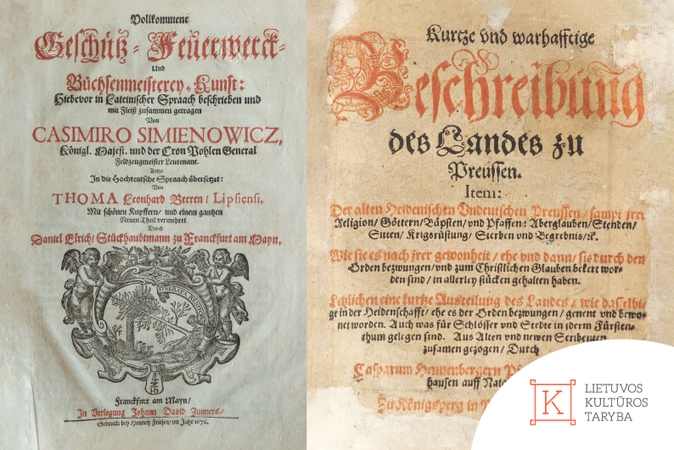 Vollkommene
Geschütz- Feuerwerck-
Und
Büchsenmeisterey-Kunst:
Hiebevor in Lateinischer Spraach beschrieben und
mit Fleiß zusammen getragen
Von
CASIMIRO SIMIENOWICZ,
Königl. Majest. und der Cron Pohlen General
Feldzeugmeister Leutenant.
Anitzo
In die Hochteutsche Spraach übersetzet:
Von
THOMA Leonhard Beeren/ Lipsiensi.
Mit schönen Kupffern/ und einem gantzen
Neuen Theil vermehrt
Durch
Daniel Elrich/ Stückhaubtmann zu Franckfurt am Mayn.
Franckfurt am Mayn/
In Verlegung Johann David Zunners/
Gedruckt bey Henrich Friesen/ im Jahr 1676.
Kurtze vnd warhafftige
Beschreibung
des Landes zu
Preussen.
Item:
Der alten Heidenischen Vndeutschen Preussen/ sampt jrer
Religion/ Göttern/ Bäpsten/ vnd Pfaffen: Aberglauben/ Stenden/
Sitten/ Krigsrüstung/ Sterben vnd Begrebnis/ ꝛc.
Wie sie es nach jrer gewonheit/ ehe vnd dann/ sie durch den
Orden bezwungen/ vnd zum Christlichen Glauben bekert wor-
den sind/ in allerley stücken gehalten haben.
Letzlichen eine kurtze Austeilung des Landes/ wie dasselbi-
ge in der Heidenschafft/ ehe es der Orden bezwungen/ genent vnd bewo-
net worden. Auch was für Schlösser vnd Stedte in jderm Fürsten-
thum gelegen sind. Aus Alten vnd newen Scribenten
zusamen gezogen/ Durch
Casparum Hennenbergern
hausen auff
Zu Königsperg in
K
LIETUVOS
KULTŪROS
TARYBA